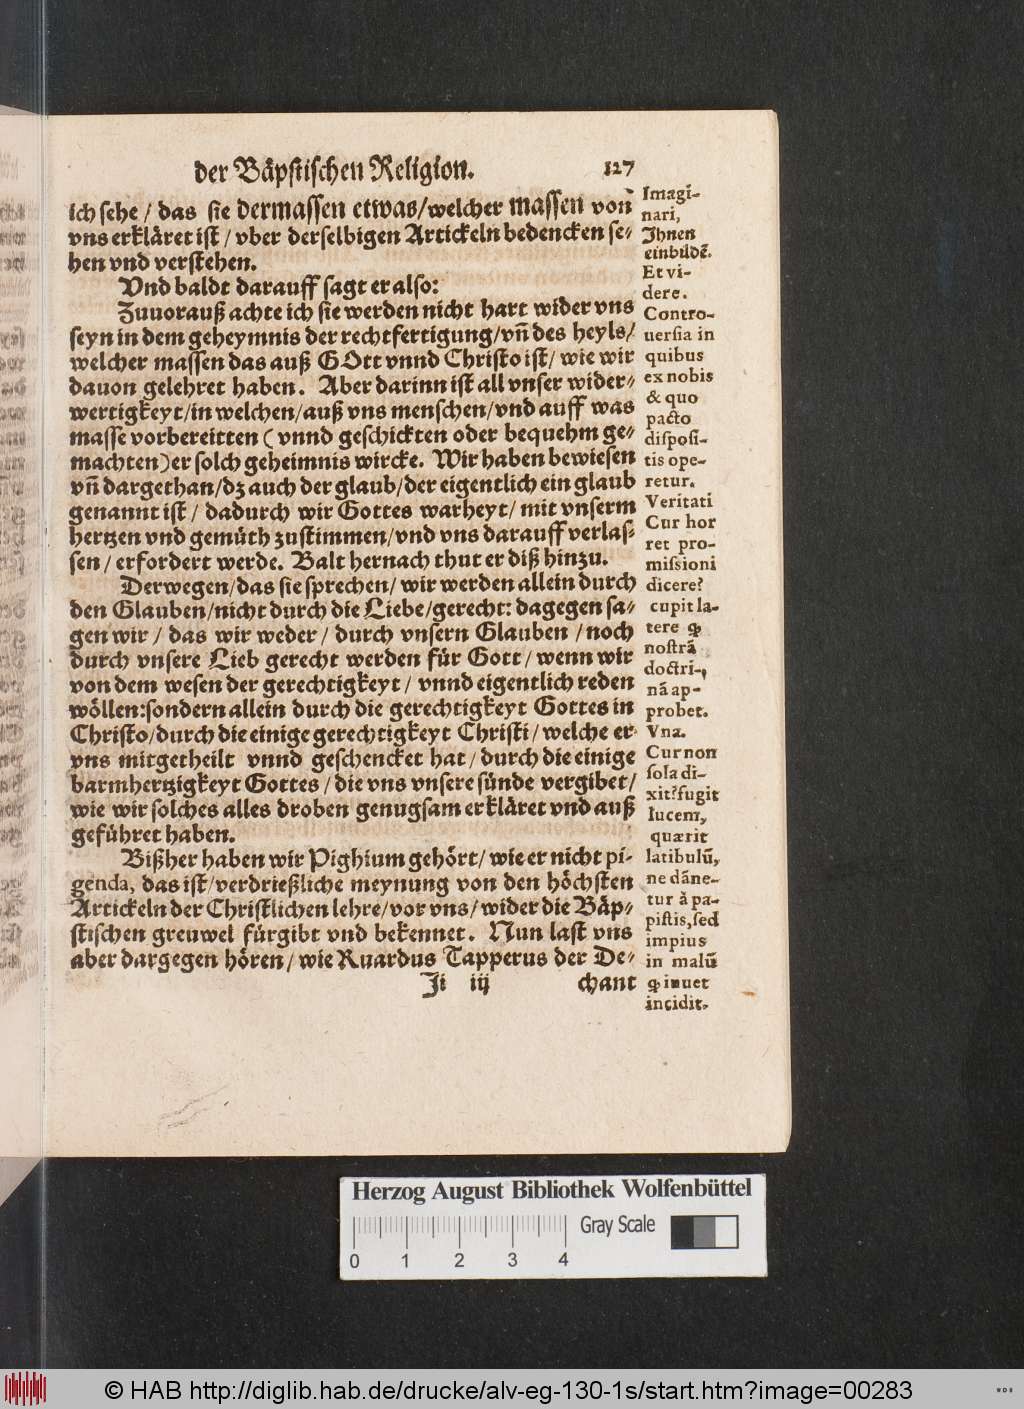 der Bäpstischen Religion. 127
ich sehe / das sie dermassen etwas/welcher massen von
vns erkläret ist / vber derselbigen Artickeln bedencken se⸗
hen vnd verstehen.
Vnd baldt darauff sagt er also:
Zuuorauß achte ich sie werden nicht hart wider vns
seyn in dem geheymnis der rechtfertigung/vñ des heyls/
welcher massen das auß GOtt vnnd Christo ist/ wie wir
dauon gelehret haben. Aber darinn ist all vnser wider⸗
wertigkeyt/in welchen/auß vns menschen/vnd auff was
masse vorbereitten ( vnnd geschickten oder bequehm ge⸗
machten)er solch geheimnis wircke. Wir haben bewiesen
vñ dargethan/dz auch der glaub/der eigentlich ein glaub
genannt ist / dadurch wir Gottes warheyt/ mit vnserm
hertzen vnd gemüth zustimmen/vnd vns darauff verlas⸗
sen / erfordert werde. Balt hernach thut er diß hinzu.
Derwegen/das sie sprechen/ wir werden allein durch
den Glauben/nicht durch die Liebe/gerecht: dagegen sa⸗
gen wir / das wir weder / durch vnsern Glauben /noch
durch vnsere Lieb gerecht werden für Gott/ wenn wir
von dem wesen der gerechtigkeyt / vnnd eigentlich reden
wöllen:sondern allein durch die gerechtigkeyt Gottes in
Christo/durch die einige gerechtigkeyt Christi/ welche er
vns mitgetheilt vnnd geschencket hat / durch die einige
barmhertzigkeyt Gottes / die vns vnsere sünde vergibet/
wie wir solches alles droben genugsam erkläret vnd auß
geführet haben.
Bißher haben wir Pighium gehört/ wie er nicht pi-
genda, das ist/verdrießliche meynung von den höchsten
Artickeln der Christlichen lehre/vor vns/ wider die Bäp⸗
stischen greuwel fürgibt vnd bekennet. Nun last vns
aber dargegen hören/ wie Ruardus Tapperus der De⸗
Ji iij chant
Imagi-
nari,
Ihnen
einbildẽ.
Et vi-
dere.
Contro-
uersia in
quibus
ex nobis
& quo
pacto
disposi-
tis ope-
retur.
Veritati
Cur hor
ret pro-
missioni
dicere?
cupit la-
tere ꝙ
nostrã
doctri-,
nã ap-
probet.
Vna.
Cur non
sola di-
xit? fugit
lucem,
quærit
latibulũ,
ne dãne-
tur à pa-
pistis, sed
impius
in malũ
ꝙ inuet
incidit.
Herzog August Bibliothek Wolfenbüttel
Gray Scale
0 1 2 3 4
© HAB http://diglib.hab.de/drucke/alv-eg-130-1s/start.htm?image=00283